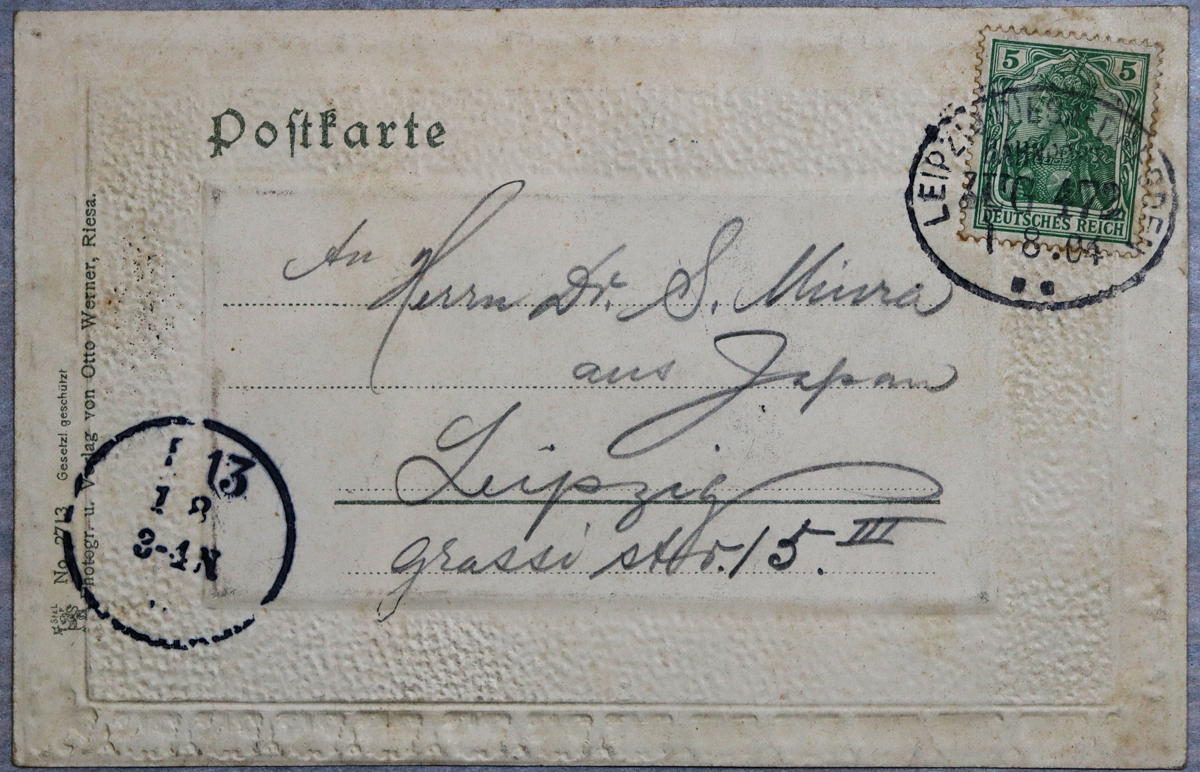 Postkarte
5 5
DEUTSCHES REICH
LEIPZIG
ZUG 472
8.04
An
Herrn Dr. S. Miura
aus Japan
Leipzig
grassi str. 15. III
13
1 8
3-4 N
No. 2713 Gesetzl. geschützt
Photogr. u. Verlag von Otto Werner, Riesa.